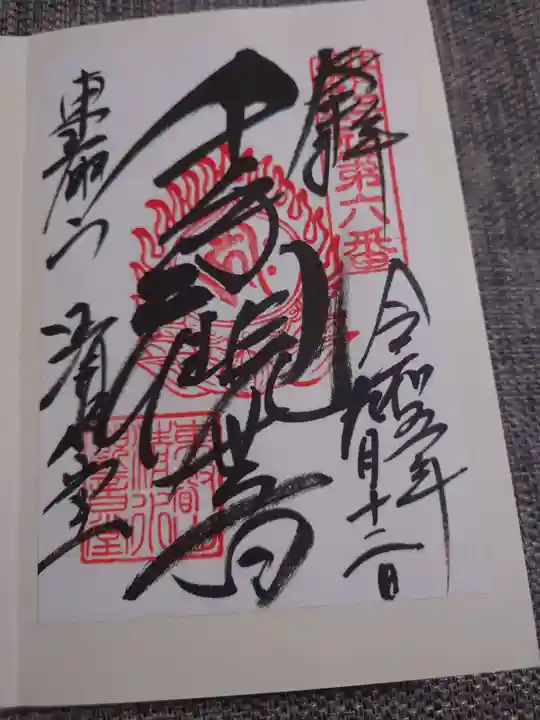 奉拝
第六番
令和五年
九月十二日
千手観世音
東叡山
清水堂